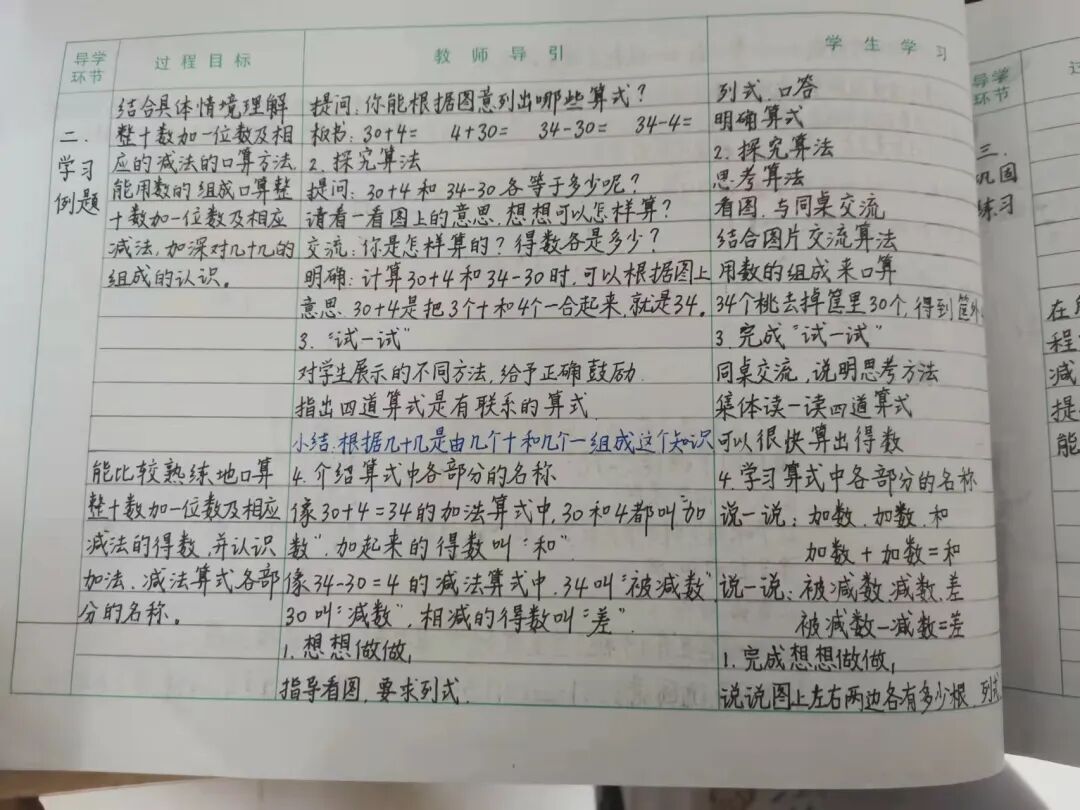 导学环节 过程目标 教师导引 学生学习
二.学习例题
结合具体情境理解
整十数加一位数及相
应的减法的口算方法.
能用数的组成口算整
十数加一位数及相应
减法,加深对几十几的
组成的认识。
提问:你能根据图意列出哪些算式?
板书:30+4= 4+30= 34-30= 34-4=
2.探究算法
提问:30+4和34-30各等于多少呢?
请看一看图上的意思.想想可以怎样算?
交流:你是怎样算的?得数各是多少?
明确:计算30+4和34-30时,可以根据图上
意思.30+4是把3个十和4个一合起来,就是34。
3."试一试"
对学生展示的不同方法,给予正确鼓励.
指出四道算式是有联系的算式.
小结:根据几十几是由几个十和几个一组成这个知识
列式.口答
明确算式
2.探究算法
思考算法
看图.与同桌交流
结合图片交流算法
用数的组成来口算
34个桃去掉筐里30个,得到筐外
3.完成"试一试"
同桌交流,说明思考方法
集体读一读四道算式
可以很快算出得数
能比较熟练地口算
整十数加一位数及相应
减法的得数,并认识
加法、减法算式各部
分的名称。
4.介绍算式中各部分的名称
像30+4=34的加法算式中,30和4都叫"加
数",加起来的得数叫"和".
像34-30=4的减法算式中.34叫"被减数"
30叫"减数",相减的得数叫"差".
1.想想做做1
指导看图.要求列式.
4.学习算式中各部分的名称
说一说:加数.加数.和
加数+加数=和
说一说:被减数.减数.差
被减数-减数=差
1.完成想想做做1
说说图上左右两边各有多少根.列式
导学环节
三.巩固练习
在
程
减
提
能